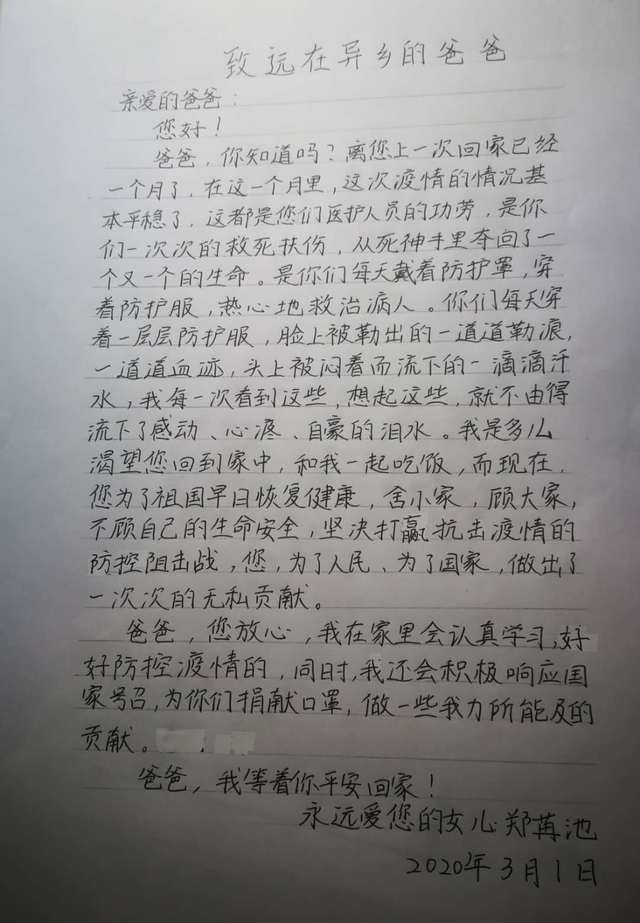 致远在异乡的爸爸
亲爱的爸爸:
您好!
爸爸,你知道吗?离您上一次回家已经
一个月了,在这一个月里,这次疫情的情况基
本平稳了,这都是您们医护人员的功劳,是你
们一次次的救死扶伤,从死神手里夺回了一
个又一个的生命。是你们每天戴着防护罩,穿
着防护服,热心地救治病人。你们每天穿
着一层层防护服,脸上被勒出的一道道勒痕,
一道道血迹,头上被闷着而流下的一滴滴汗
水,我每一次看到这些,想起这些,就不由得
流下了感动、心疼、自豪的泪水。我是多么
渴望您回到家中,和我一起吃饭,而现在,
您为了祖国早日恢复健康,舍小家,顾大家,
不顾自己的生命安全,坚决打赢抗击疫情的
防控阻击战,您,为了人民、为了国家,做出了
一次次的无私贡献。
爸爸,您放心,我在家里会认真学习,好
好防控疫情的,同时,我还会积极响应国
家号召,为你们捐献口罩,做一些我力所能及的
贡献。
爸爸,我等着你平安回家!
永远爱您的女儿郑苒池
2020年3月1日